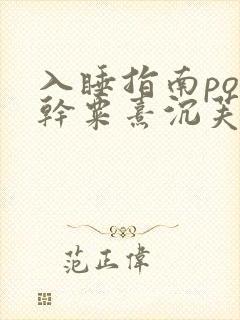 入睡指南po
幹粟熹沉芙
范正偉